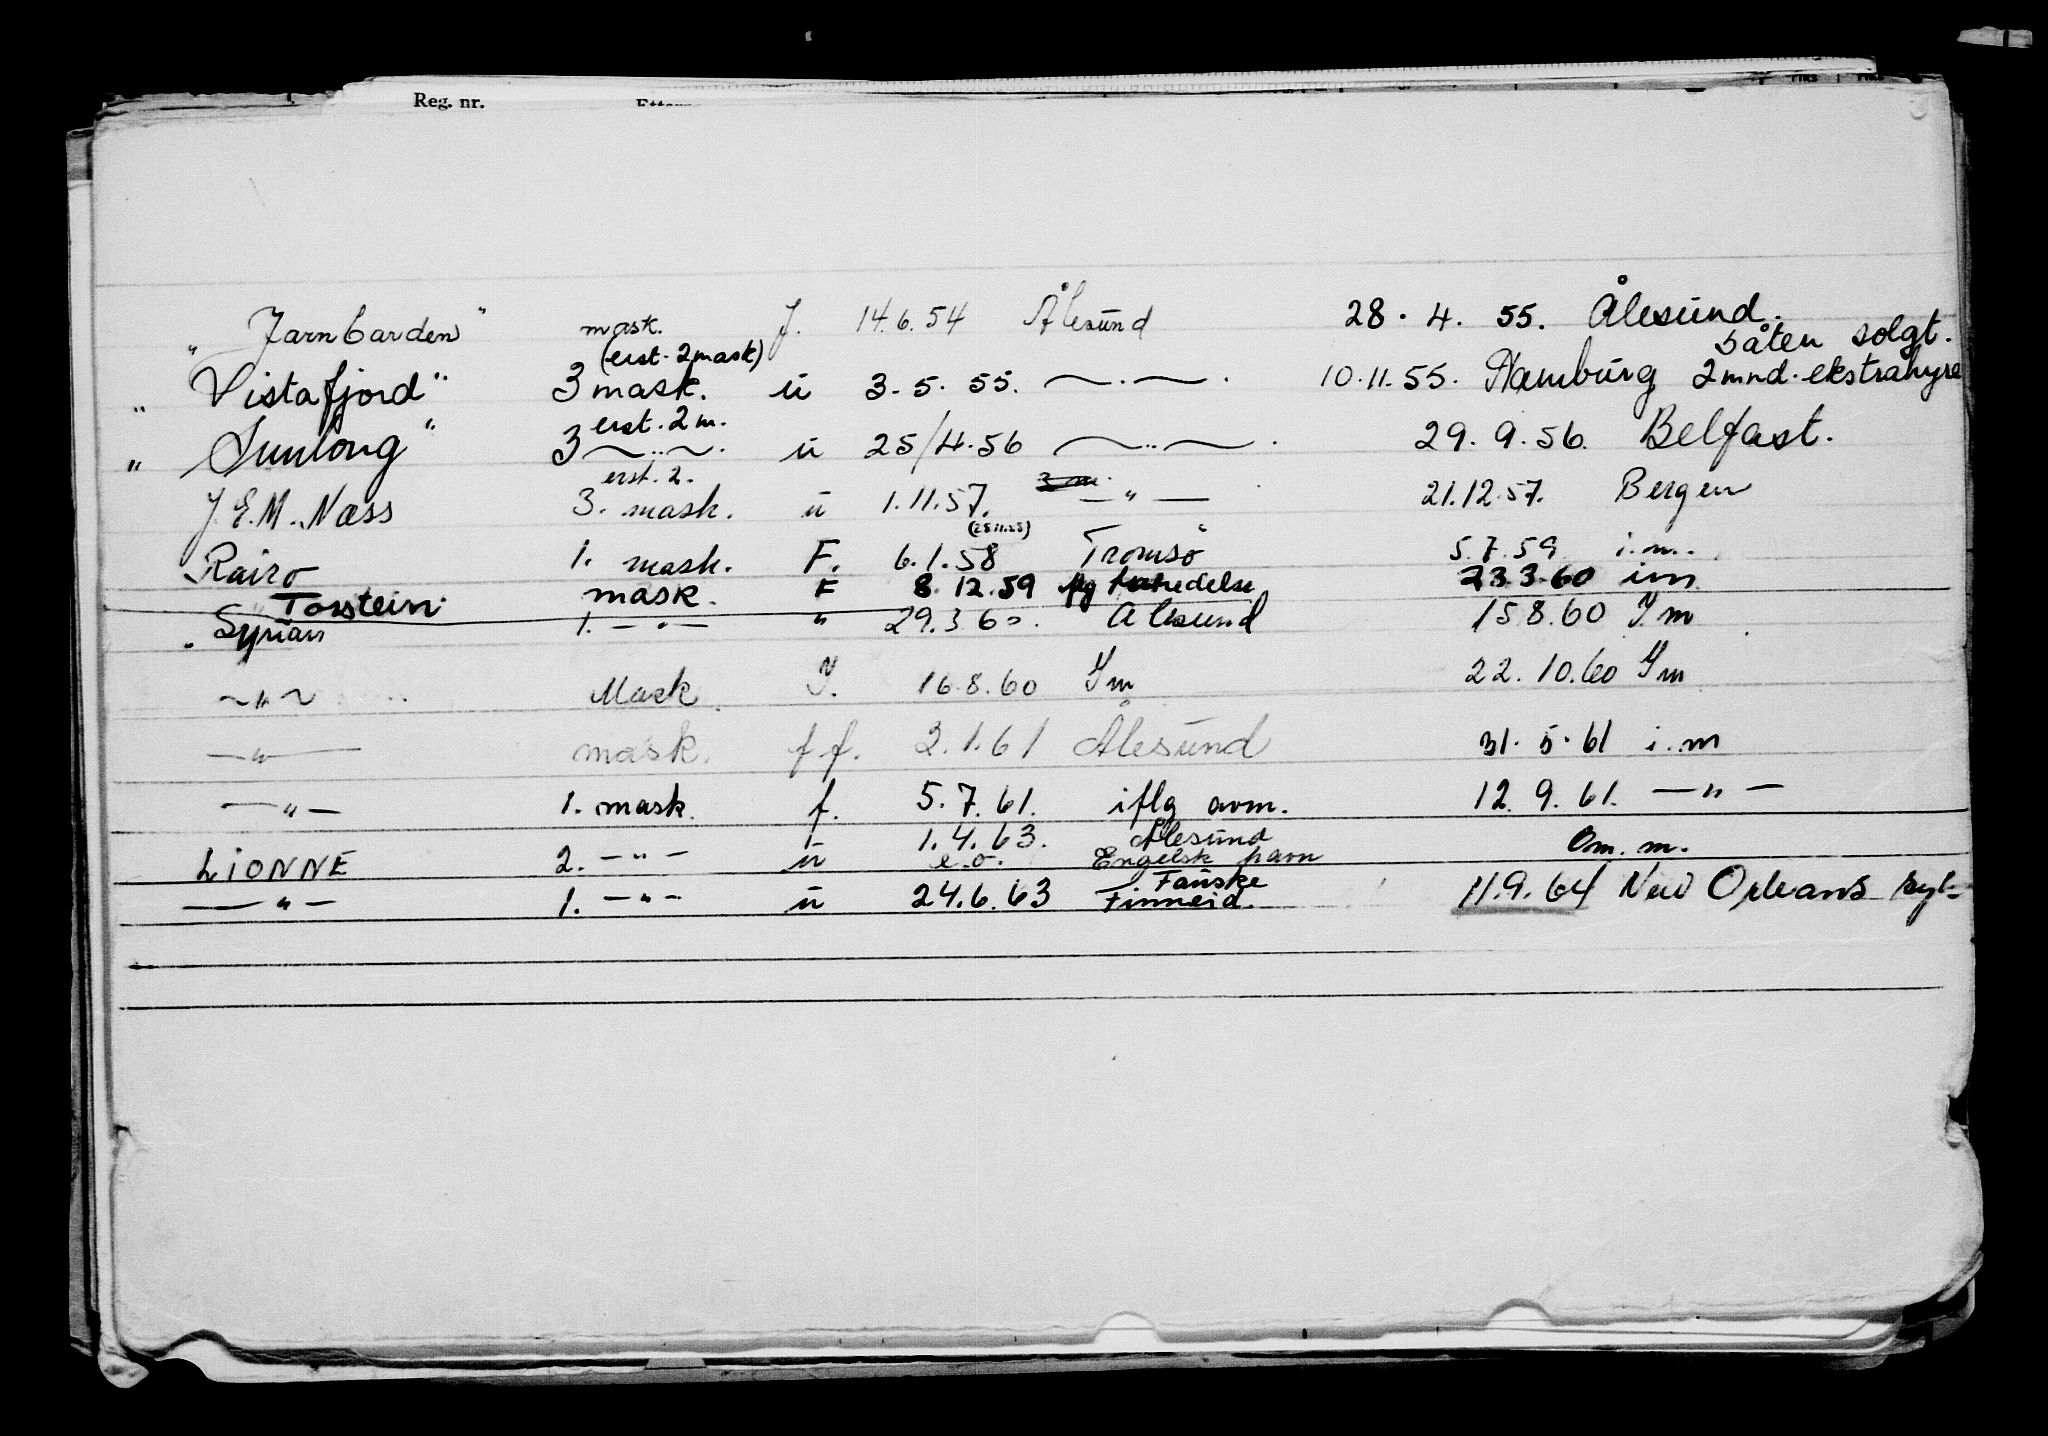 Reg. nr.
" Jarnbarden" mask. f. 14.6.54 Ålesund 28.4.55. Ålesund.
(erst. 2 mask) båten solgt.
" Vistafjord" 3 mask. ü 3.5.55. ~.~. 10.11.55. Hamburg 2 mnd. ekstrahyre
erst. 2 m.
" Sunlong" 3 ~..~. ü 25/4.56 ~..~. 29.9.56. Belfast.
erst. 2.
J.E.M. Næss 3. mask. ü 1.11.57. — " — 21.12.57. Bergen
Rairo 1. mask. F. 6.1.58 Tromsö 5.7.59 i.m.
Torstein mask. F 8.12.59 23.3.60 im
" Syrian 1. — " — " 29.3.60. Ålesund 15.8.60 Im
~ " ~ Mask. F. 16.8.60 Im 22.10.60 Im
— " — mask. f f. 2.1.61 Ålesund 31.5.61 i.m
— " — 1. mask. f. 5.7.61. iflg avm. 12.9.61. — " —
1.4.63. Ålesund
LIONNE 2. — " — ü e.o. Engelsk havn Om. m.
Fauske
— " — 1. — " — ü 24.6.63 Finneid. 11.9.64 New Orleans syk-